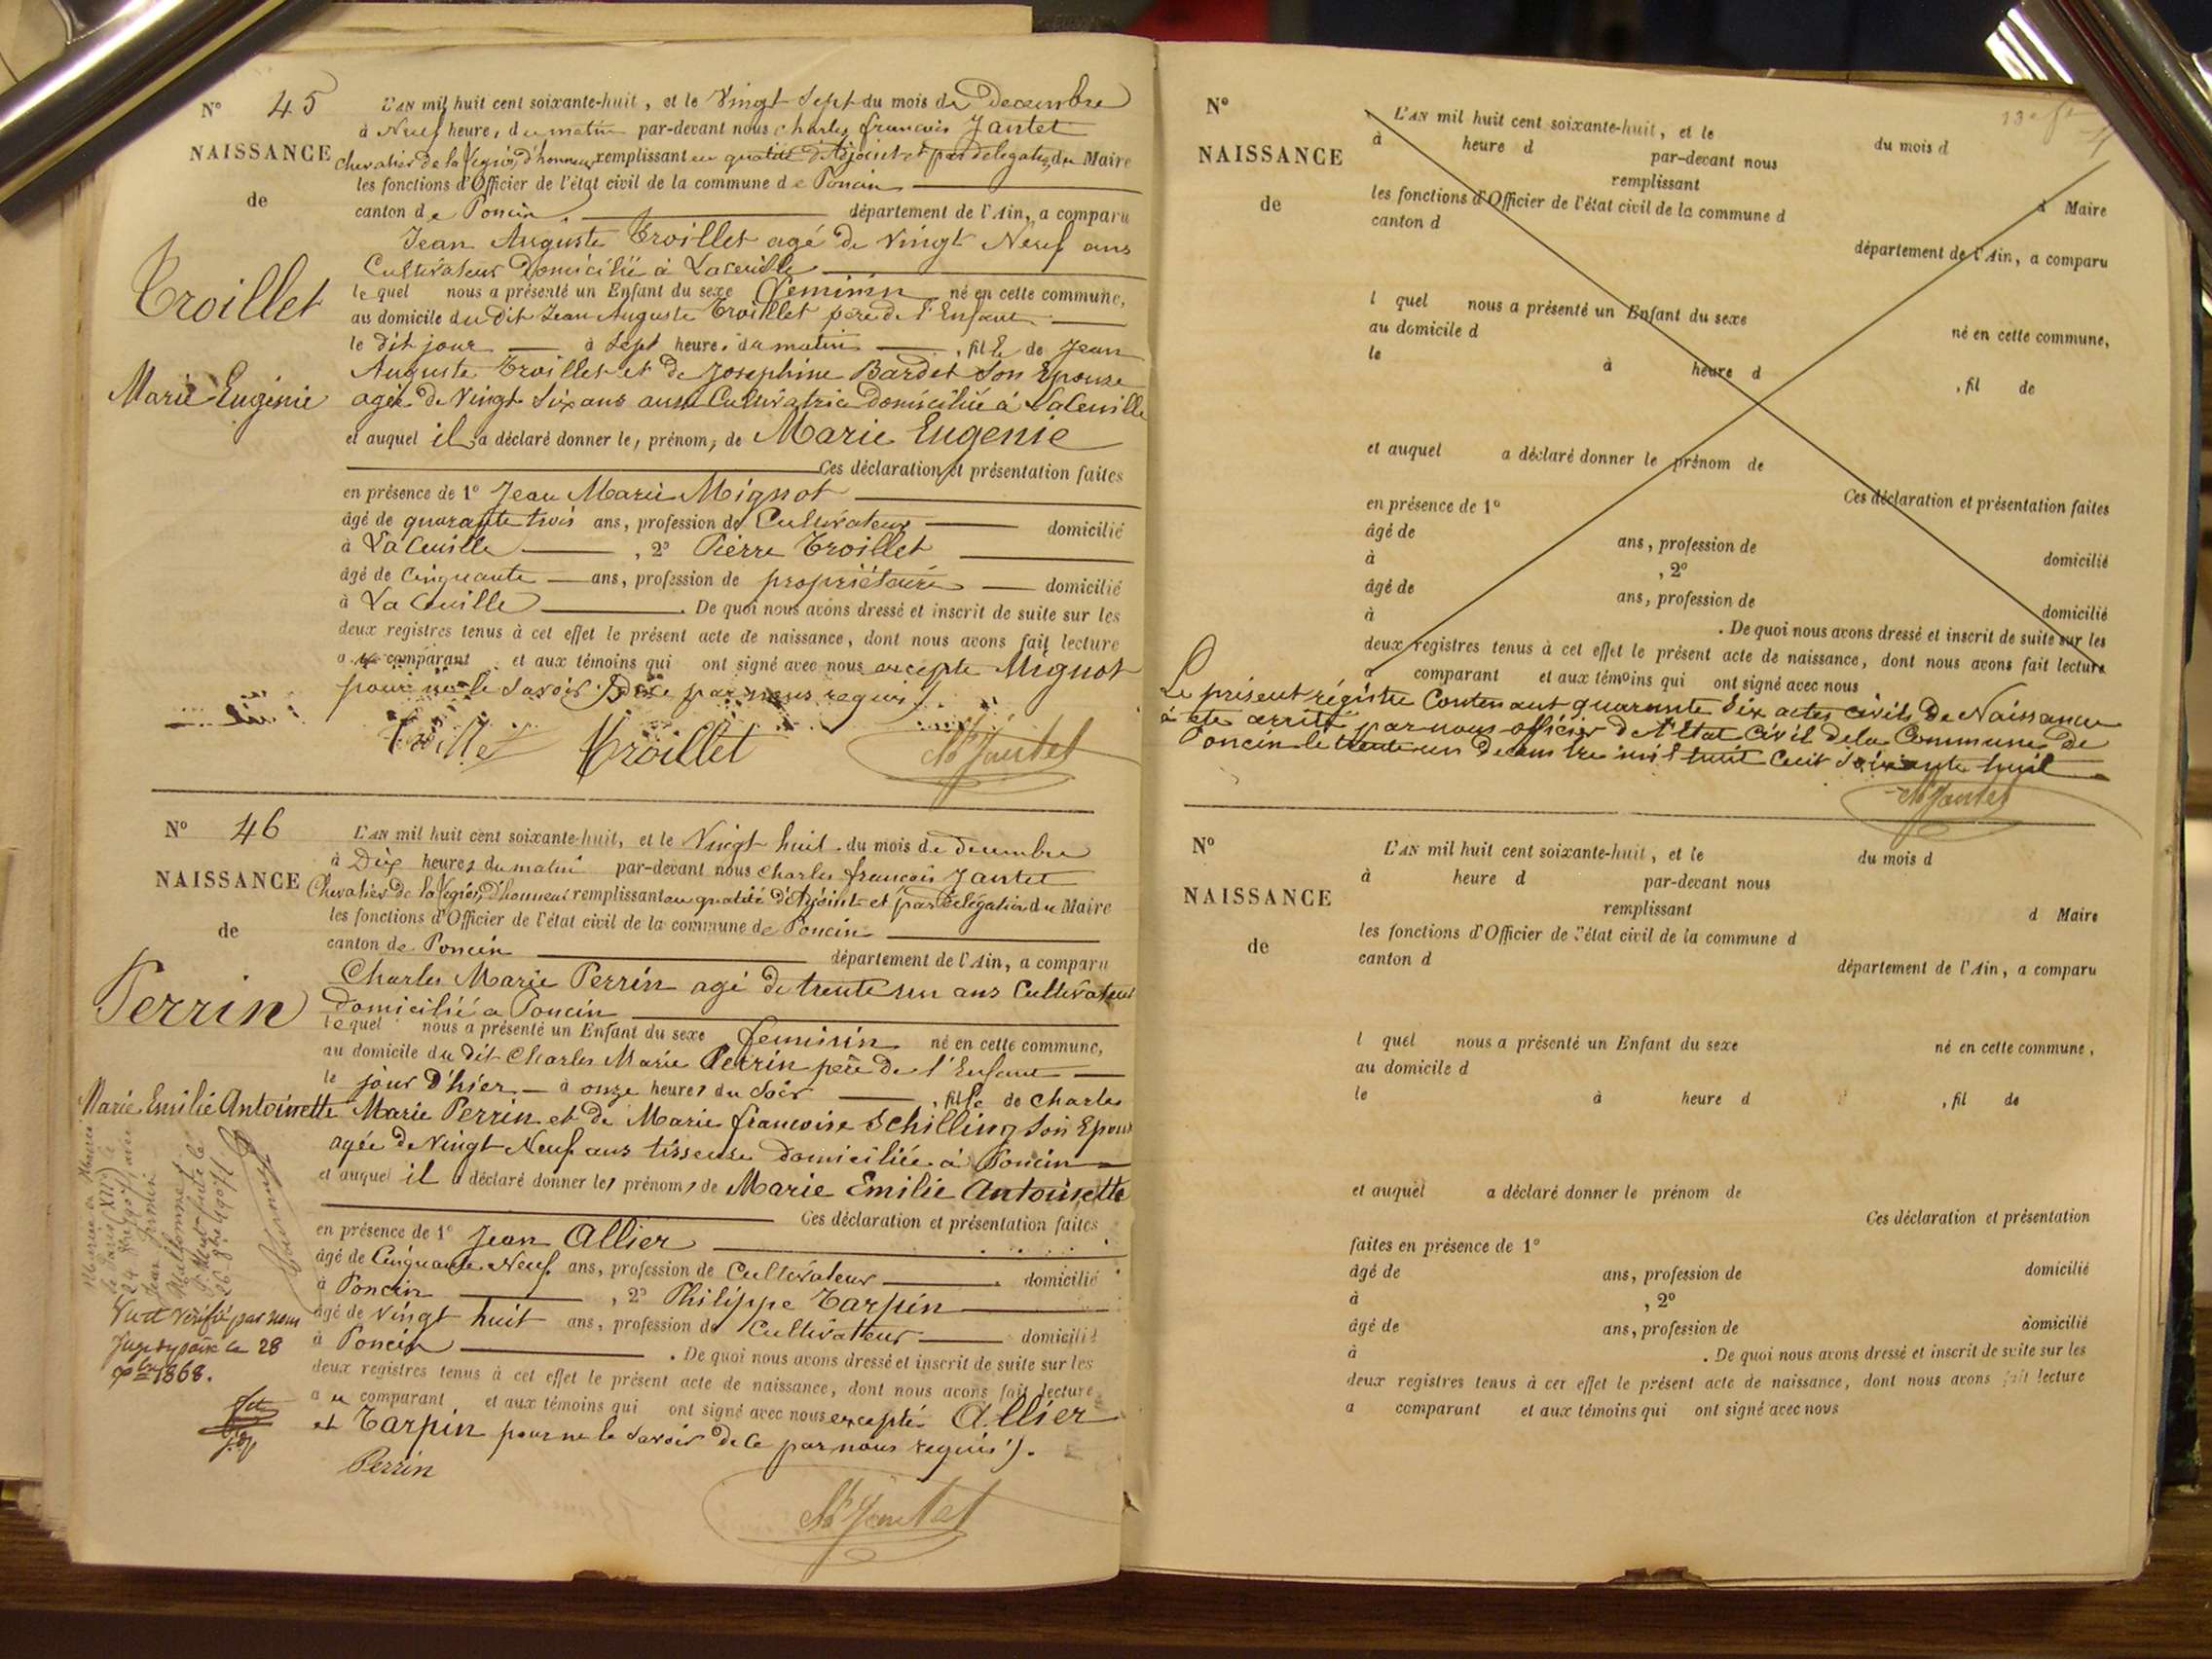 N° 45
NAISSANCE
de
Troillet
Marie Eugénie
L'AN mil huit cent soixante-huit, et le Vingt Sept du mois de Decembre
à Neuf heure, du matin par-devant nous Charles francois Jantet
Chevalier de la Légion d'honneur remplissant en qualité d'Adjoint et par délégation du Maire
les fonctions d'Officier de l'état civil de la commune de Poncin
canton de Poncin département de l'Ain, a comparu
Jean Auguste Troillet agé de Vingt Neuf ans
Cultivateur Domicilié à Lacueille
lequel nous a présenté un Enfant du sexe Feminin né en cette commune,
au domicile du dit Jean Auguste Troillet père de l'Enfant
le dit jour à Sept heure, du matin, fille de Jean
Auguste Troillet et de Josephine Bardet Son Epouse
agée de Vingt Six ans aussi Cultivatrice Domiciliée à LaCueille
et auquel il a déclaré donner le, prénom, de Marie Eugenie
Ces déclaration et présentation faites
en présence de 1° Jean Marie Mignot
âgé de quarante trois ans, profession de Cultivateur domicilié
à LaCueille, 2° Pierre Troillet
âgé de Cinquante ans, profession de propriétaire domicilié
à La Cueille. De quoi nous avons dressé et inscrit de suite sur les
deux registres tenus à cet effet le présent acte de naissance, dont nous avons fait lecture
au comparant et aux témoins qui ont signé avec nous excepté Mignot
pour ne le Savoir De ce par nous requis).
Troillet Troillet Ch Jantet
N° 46
NAISSANCE
de
Perrin
Marie Emilie Antoinette
L'AN mil huit cent soixante-huit, et le Vingt huit du mois de decembre
à Dix heures du matin par-devant nous Charles francois Jantet
Chevalier de la Légion D'honneur remplissant en qualité d'Adjoint et par délégation du Maire
les fonctions d'Officier de l'état civil de la commune de Poncin
canton de Poncin département de l'Ain, a comparu
Charles Marie Perrin agé de trente un ans Cultivateur
Domicilié a Poncin
lequel nous a présenté un Enfant du sexe feminin né en cette commune,
au domicile du dit Charles Marie Perrin père de l'Enfant
le jour D'hier à onze heures du Soir, fille de Charles
Marie Perrin et de Marie francoise Schilling Son Epouse
agée de Vingt Neuf ans tisseuse domiciliée à Poncin
et auquel il a déclaré donner les prénoms de Marie Emilie Antoinette
Ces déclaration et présentation faites
en présence de 1° Jean Allier
âgé de Cinquante Neuf ans, profession de Cultivateur domicilié
à Poncin, 2° Philippe Tarpin
âgé de Vingt huit ans, profession de Cultivateur domicilié
à Poncin. De quoi nous avons dressé et inscrit de suite sur les
deux registres tenus à cet effet le présent acte de naissance, dont nous avons fait lecture
au comparant et aux témoins qui ont signé avec nous excepté Allier
et Tarpin pour ne le Savoir de ce par nous requis).
Perrin
Ch Jantet
Mariée en Mairie
de Paris XII
24
Jean
26
Vu et Vérifié par nous
Juge de paix le 28
1868.
N°
NAISSANCE
de
L'AN mil huit cent soixante-huit, et le du mois d
à heure d par-devant nous
remplissant d Maire
les fonctions d'Officier de l'état civil de la commune d
canton d département de l'Ain, a comparu
l quel nous a présenté un Enfant du sexe né en cette commune,
au domicile d
le à heure d, fil de
et auquel a déclaré donner le prénom de
Ces déclaration et présentation faites
en présence de 1°
âgé de ans, profession de domicilié
à, 2°
âgé de ans, profession de domicilié
à. De quoi nous avons dressé et inscrit de suite sur les
deux registres tenus à cet effet le présent acte de naissance, dont nous avons fait lecture
a comparant et aux témoins qui ont signé avec nous
Le présent régistre Contenant quarante Six actes civils De Naissance
à été arrêté par nous officier de l'Etat Civil de la Commune de
Poncin le trente un Decembre mil huit Cent Soixante huit
Ch Jantet
N°
NAISSANCE
de
L'AN mil huit cent soixante-huit, et le du mois d
à heure d par-devant nous
remplissant d Maire
les fonctions d'Officier de l'état civil de la commune d
canton d département de l'Ain, a comparu
l quel nous a présenté un Enfant du sexe né en cette commune,
au domicile d
le à heure d, fil de
et auquel a déclaré donner le prénom de
Ces déclaration et présentation
faites en présence de 1°
âgé de ans, profession de domicilié
à, 2°
âgé de ans, profession de domicilié
à. De quoi nous avons dressé et inscrit de suite sur les
deux registres tenus à cer effet le présent acte de naissance, dont nous avons fait lecture
a comparant et aux témoins qui ont signé avec nous